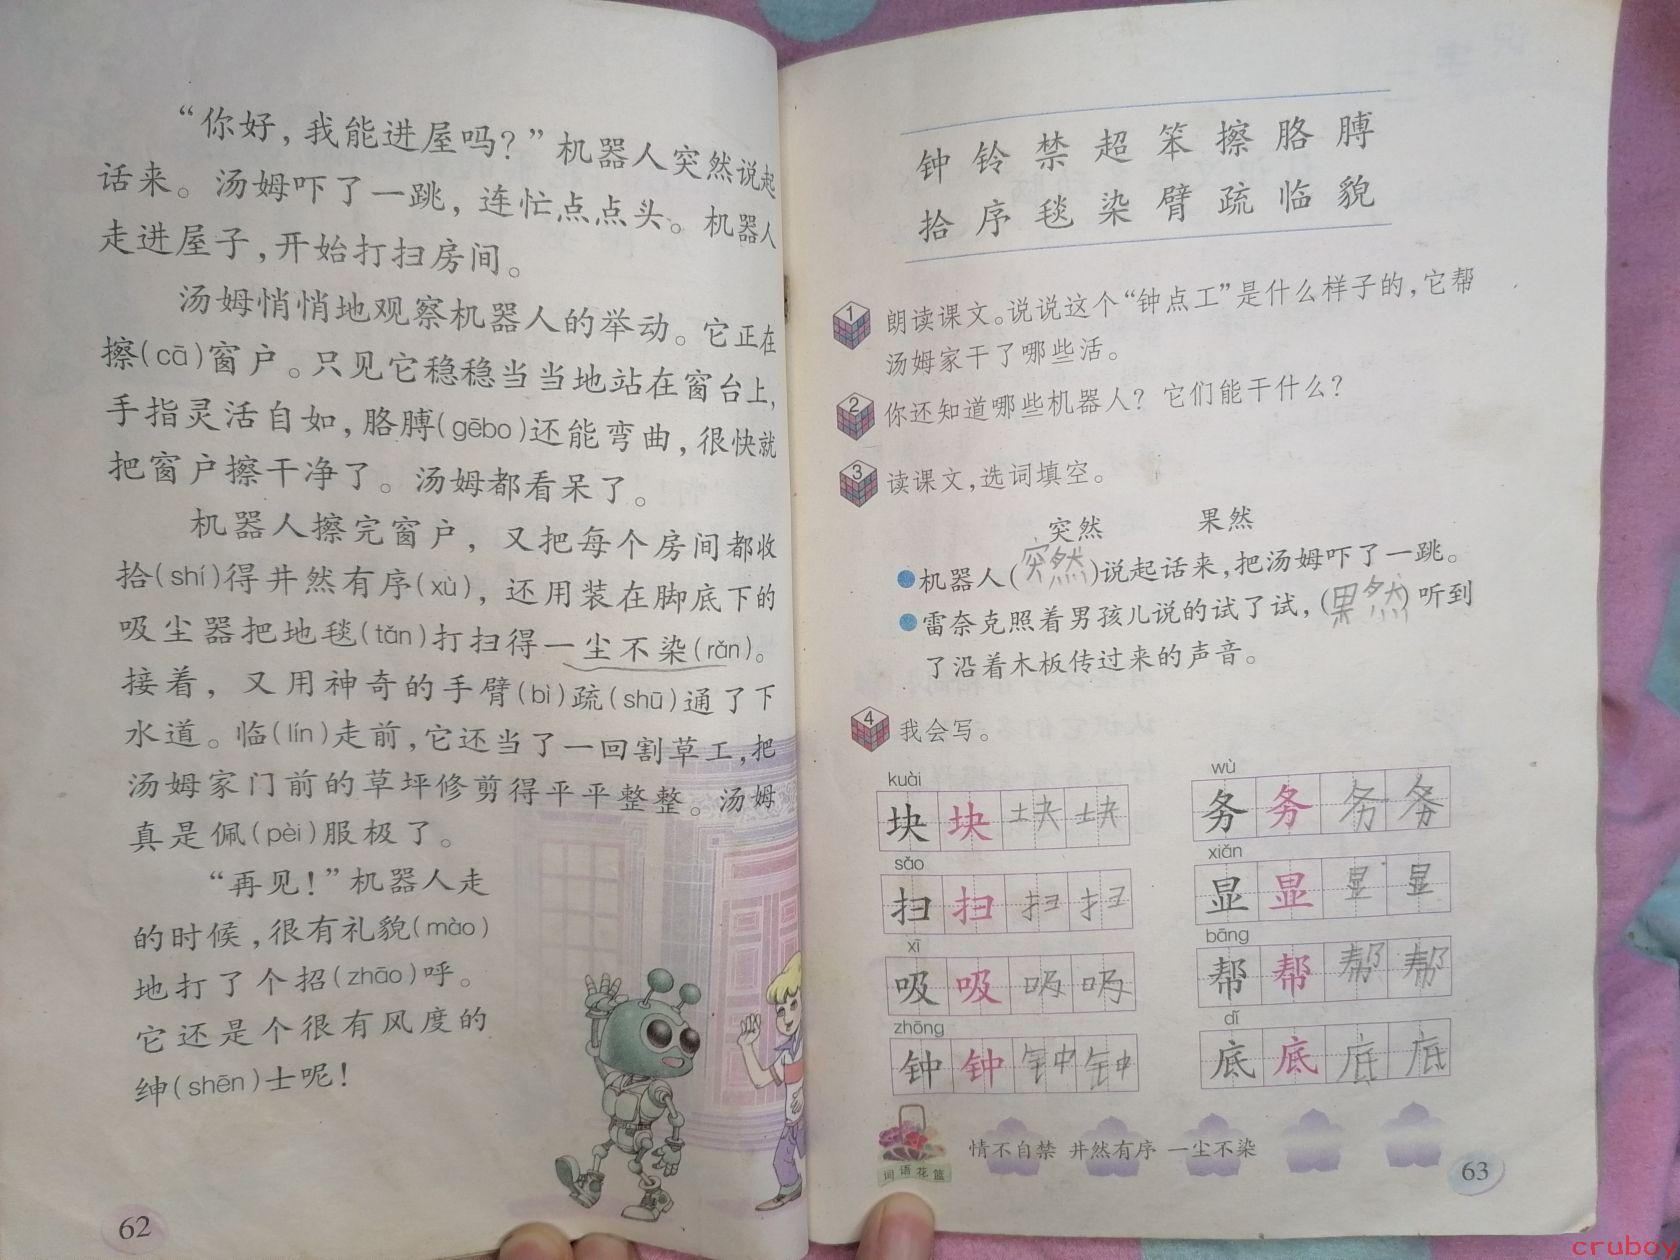 “你好，我能进屋吗？”机器人突然说起
话来。汤姆吓了一跳，连忙点点头。机器人
走进屋子，开始打扫房间。
汤姆悄悄地观察机器人的举动。它正在
擦(cā)窗户。只见它稳稳当当地站在窗台上，
手指灵活自如，胳膊(gēbo)还能弯曲，很快就
把窗户擦干净了。汤姆都看呆了。
机器人擦完窗户，又把每个房间都收
拾(shí)得井然有序(xù)，还用装在脚底下的
吸尘器把地毯(tǎn)打扫得一尘不染(rǎn)。
接着，又用神奇的手臂(bì)疏(shū)通了下
水道。临(lín)走前，它还当了一回割草工，把
汤姆家门前的草坪修剪得平平整整。汤姆
真是佩(pèi)服极了。
“再见！”机器人走
的时候，很有礼貌(mào)
地打了个招(zhāo)呼。
它还是个很有风度的
绅(shēn)士呢！
62
钟 铃 禁 超 笨 擦 胳 膊
拾 序 毯 染 臂 疏 临 貌
1 朗读课文。说说这个“钟点工”是什么样子的，它帮
汤姆家干了哪些活。
2 你还知道哪些机器人？它们能干什么？
3 读课文，选词填空。
突然 果然
机器人(突然)说起话来，把汤姆吓了一跳。
雷奈克照着男孩儿说的试了试，(果然)听到
了沿着木板传过来的声音。
4 我会写。
kuài wù
块 块 块 块 务 务 务 务
sǎo xiǎn
扫 扫 扫 扫 显 显 显 显
xī bāng
吸 吸 吸 吸 帮 帮 帮 帮
zhōng dǐ
钟 钟 钟 钟 底 底 底 底
情不自禁 井然有序 一尘不染
词语花篮
63
cruboy